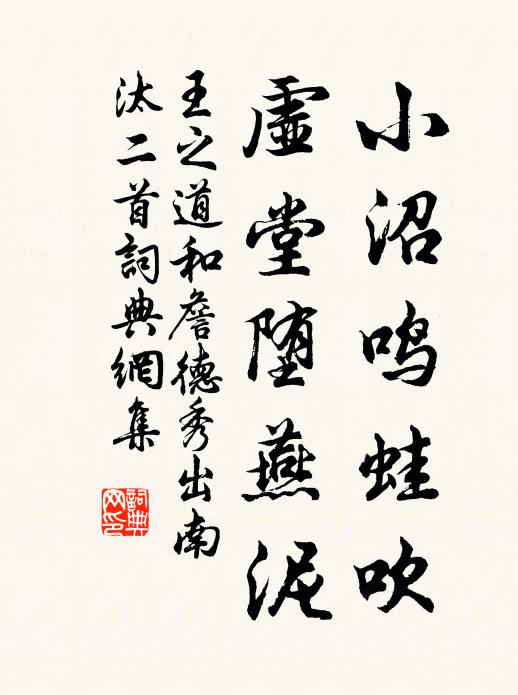 小沼鸣蛙吹
虚堂堕燕泥
王之道和詹德秀出南
汰二首詞典網集
詞典网印